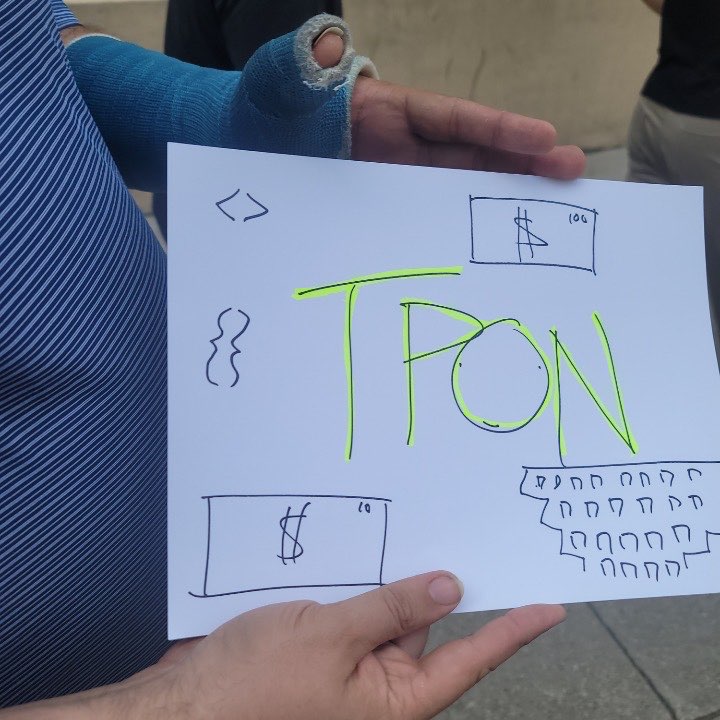 <>
$ 100
TPON
{}
$ 10